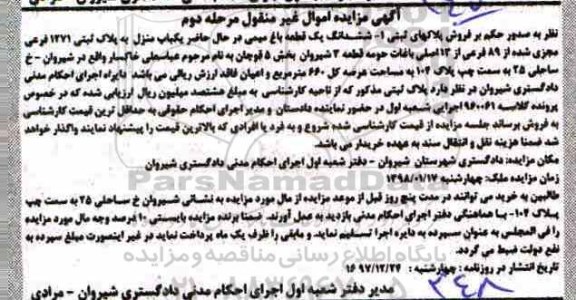 آگهی مزایده اموال غیر منقول مرحله دوم
نظر به صدور حکم بر فروش پلاکهای ثبتی ۱- ششدانگ یک قطعه باغ میمی در حال حاضر یکباب منزل به پلاک ثبتی ۱۲۷۱ فرعی
مجزی شده از ۸۹ فرعی از ۱۳ اصلی باغات حومه قطعه ۳ شیروان بخش ۵ قوچان به نام مرحوم عباسعلی خاکسار واقع در شیروان - خ
ساحلی ۲۵ به سمت چپ پلاک ۱۰۴ به مساحت عرصه کل ۶۶۰ مترمربع و اعیان فاقد ارزش ریالی می باشد دایره اجرای احکام مدنی
دادگستری شیروان در نظر دارد پلاک ثبتی مذکور که از ناحیه کارشناسی به مبلغ هشتصد میلیون ریال ارزیابی شده که در خصوص
پرونده کلاسه ۹۶۰۰۶۱ اجرای شعبه اول در حضور نماینده دادستان و مدیر اجرای احکام حقوقی به حداقل ترین قیمت کارشناسی
به فروش برساند جلسه مزایده از قیمت کارشناسی شده شروع و به فرد یا افرادی که بالاترین قیمت را پیشنهاد نمایند واگذار خواهد
شد ضمنا هزینه نقل و انتقال سند به عهده خریدار می باشد.
مکان مزایده: دادگستری شهرستان شیروان - دفتر شعبه اول اجرای احکام مدنی دادگستری شیروان
زمان مزایده ملک: چهارشنبه ۱۳۹۸/۰۱/۱۷
طالبین به خرید می توانند در مدت پنج روز قبل از موعد مزایده از مال مورد مزایده به نشانی شیروان خ ساحلی ۲۵ به سمت چپ
پلاک ۱۰۴- با هماهنگی دفتر اجرای احکام مدنی بازدید به عمل آورند. ضمنا برنده مزایده بایستی ۱۰ درصد وجه مال مورد مزایده
را فی المجلس به عنوان سپرده به دایره اجرا تسلیم نماید و مابقی را ظرف یک ماه پرداخت نماید در غیر اینصورت مبلغ سپرده به
نفع دولت ضبط می گردد.
تاریخ انتشار در روزنامه: چهارشنبه: ۱۶
مدیر دفتر شعبه اول اجرای احکام مدنی دادگستری شیروان - مرادی
ParsNamadData
پایگاه اطلاع رسانی مناقصه و مزایده